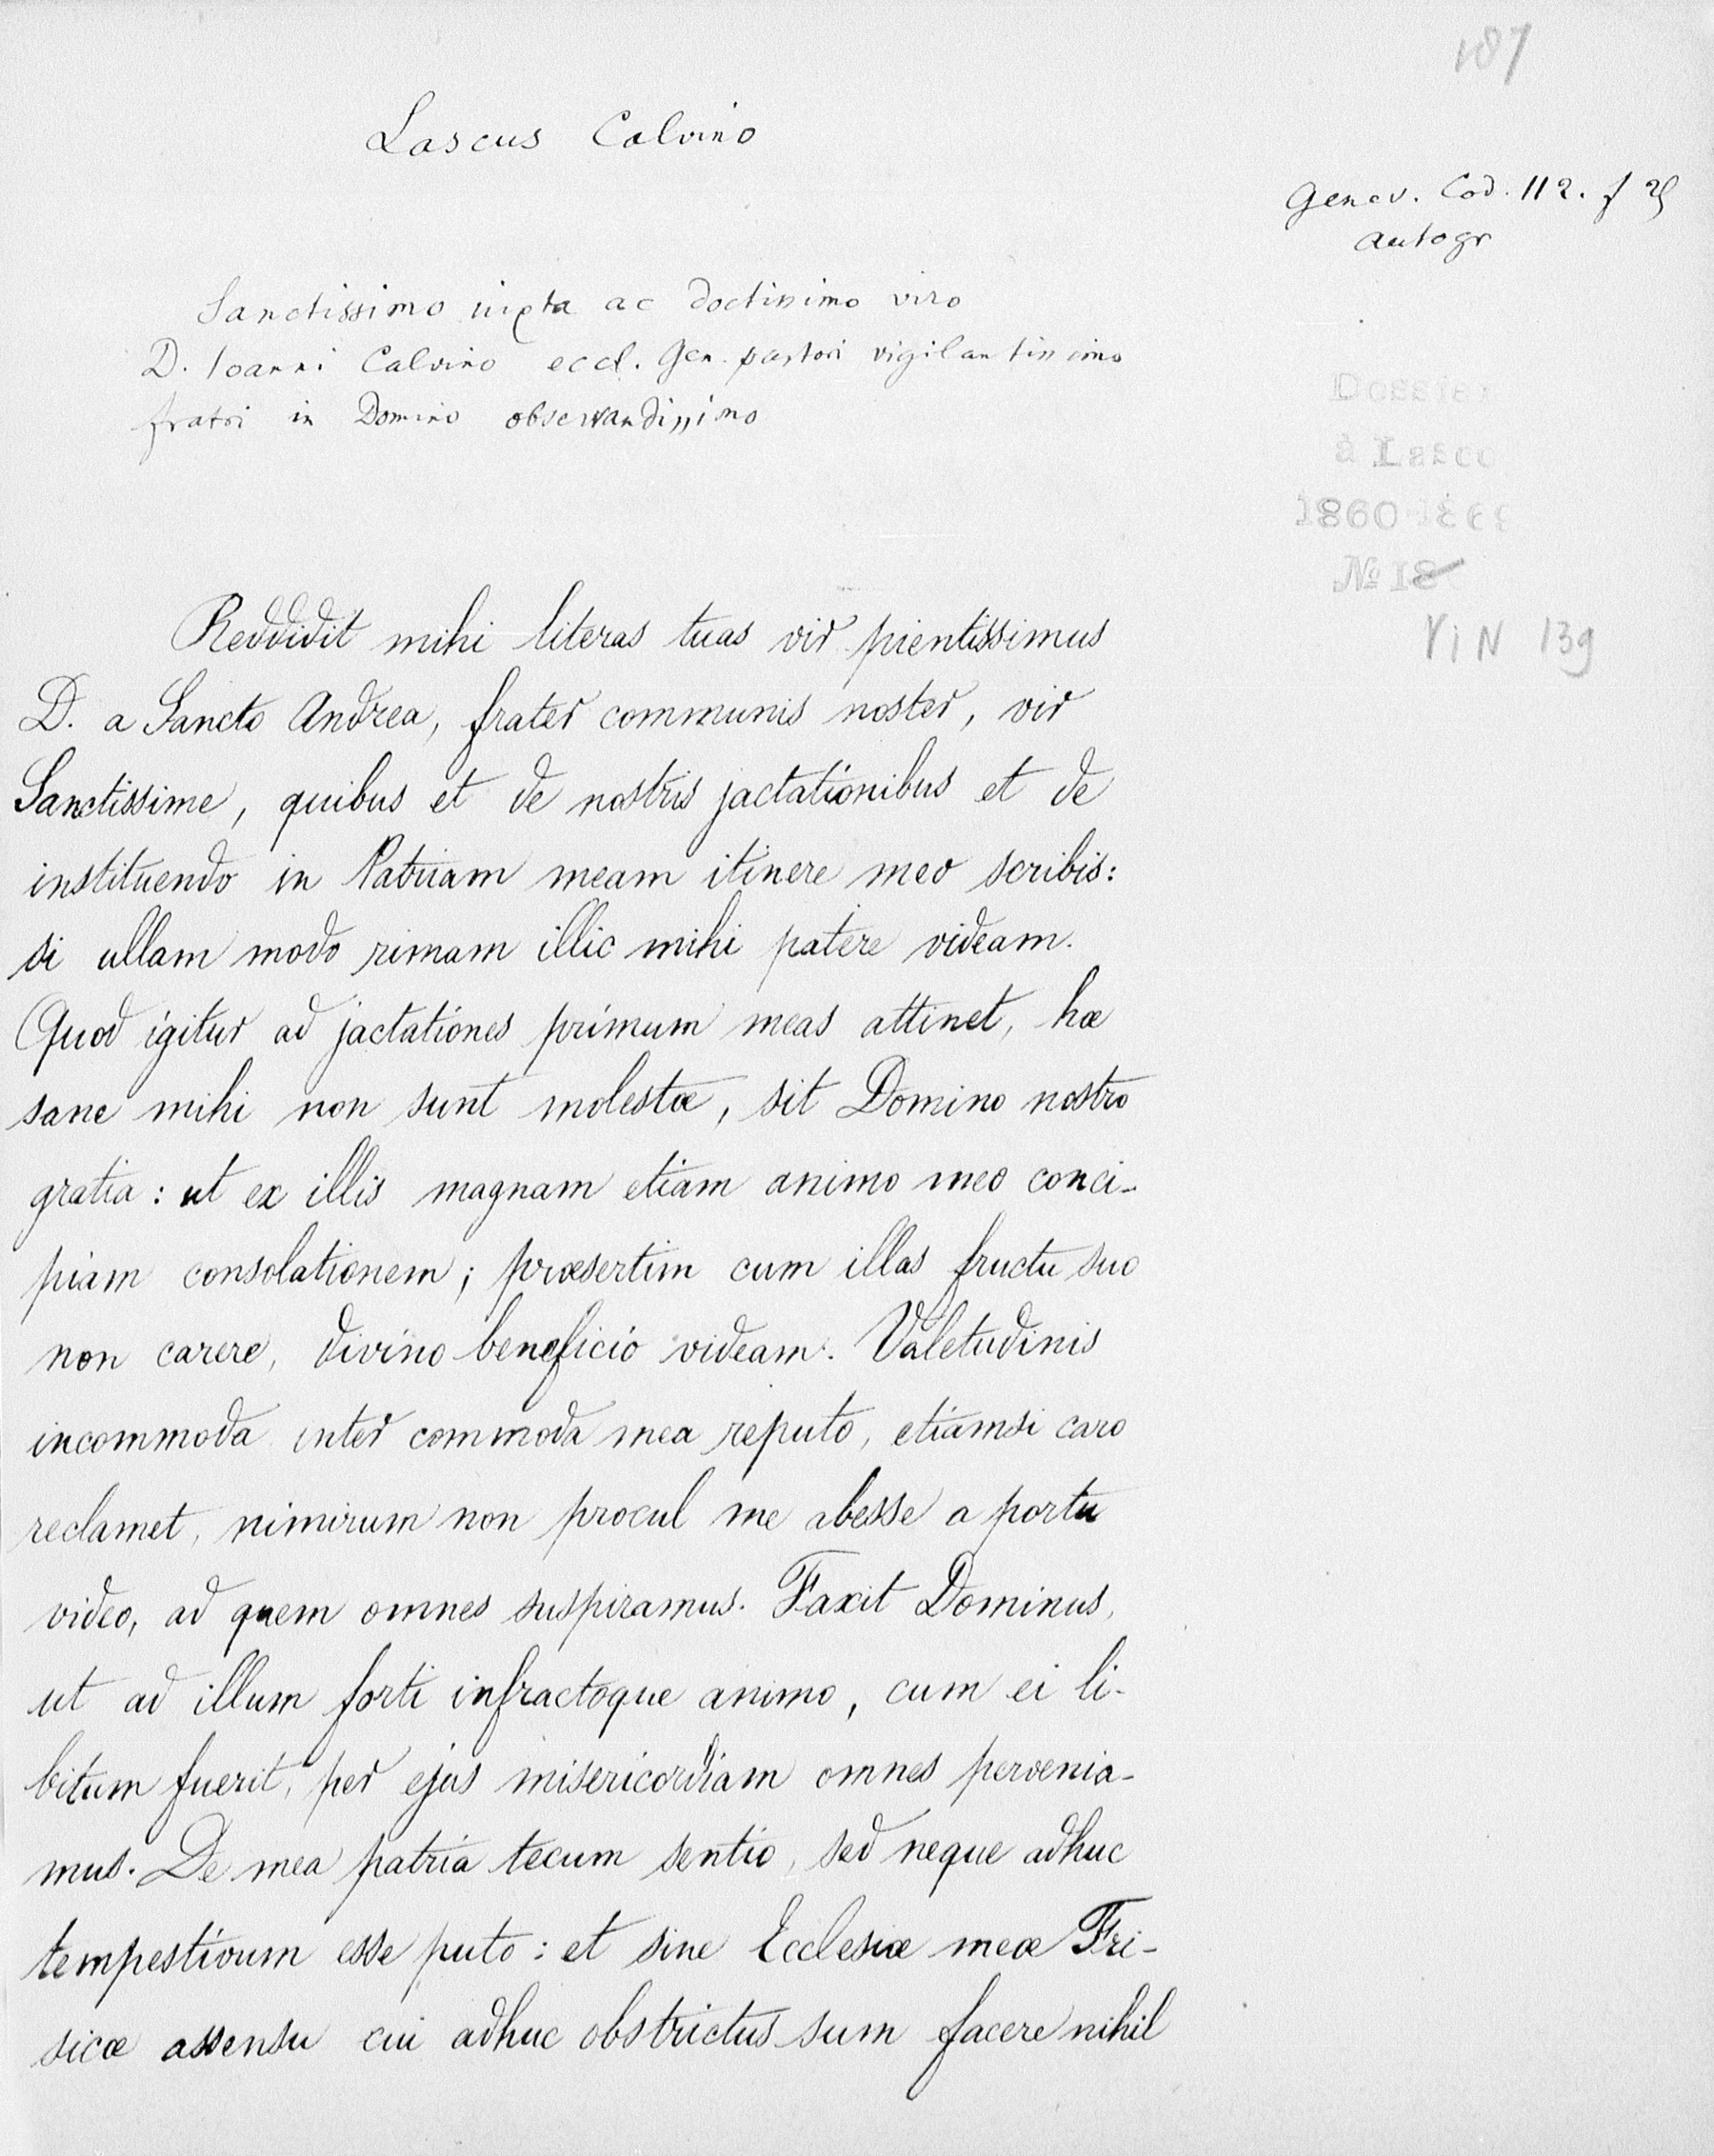 187
Lascus Calvino
Genev. Cod. 112. f 25
autogr
Sanctissimo iuxta ac doctissimo viro
D. Ioanni Calvino eccl. Gen. pastori vigilantissimo
fratri in Domino observandissimo
Dossier
à Lasco
1860-1869
№ 18
VIN 139
Reddidit mihi literas tuas vir pientissimus
D. a Sancto Andrea, frater communis noster, vir
Sanctissime, quibus et de nostris jactationibus et de
instituendo in Patriam meam itinere meo scribis:
si ullam modo rimam illic mihi patere videam.
Quod igitur ad jactationes primum meas attinet, hæ
sane mihi non sunt molestæ, sit Domino nostro
gratia: ut ex illis magnam etiam animo meo conci-
piam consolationem; præsertim cum illas fructu suo
non carere, divino beneficio videam. Valetudinis
incommoda inter commoda mea reputo, etiamsi caro
reclamet, nimirum non procul me abesse a portu
video, ad quem omnes suspiramus. Faxit Dominus,
ut ad illum forti infractoque animo, cum ei li-
bitum fuerit, per ejus misericordiam omnes pervenia-
mus. De mea patria tecum sentio, sed neque adhuc
tempestivum esse puto: et sine Ecclesiæ meæ Fri-
sicæ assensu cui adhuc obstrictus sum facere nihil